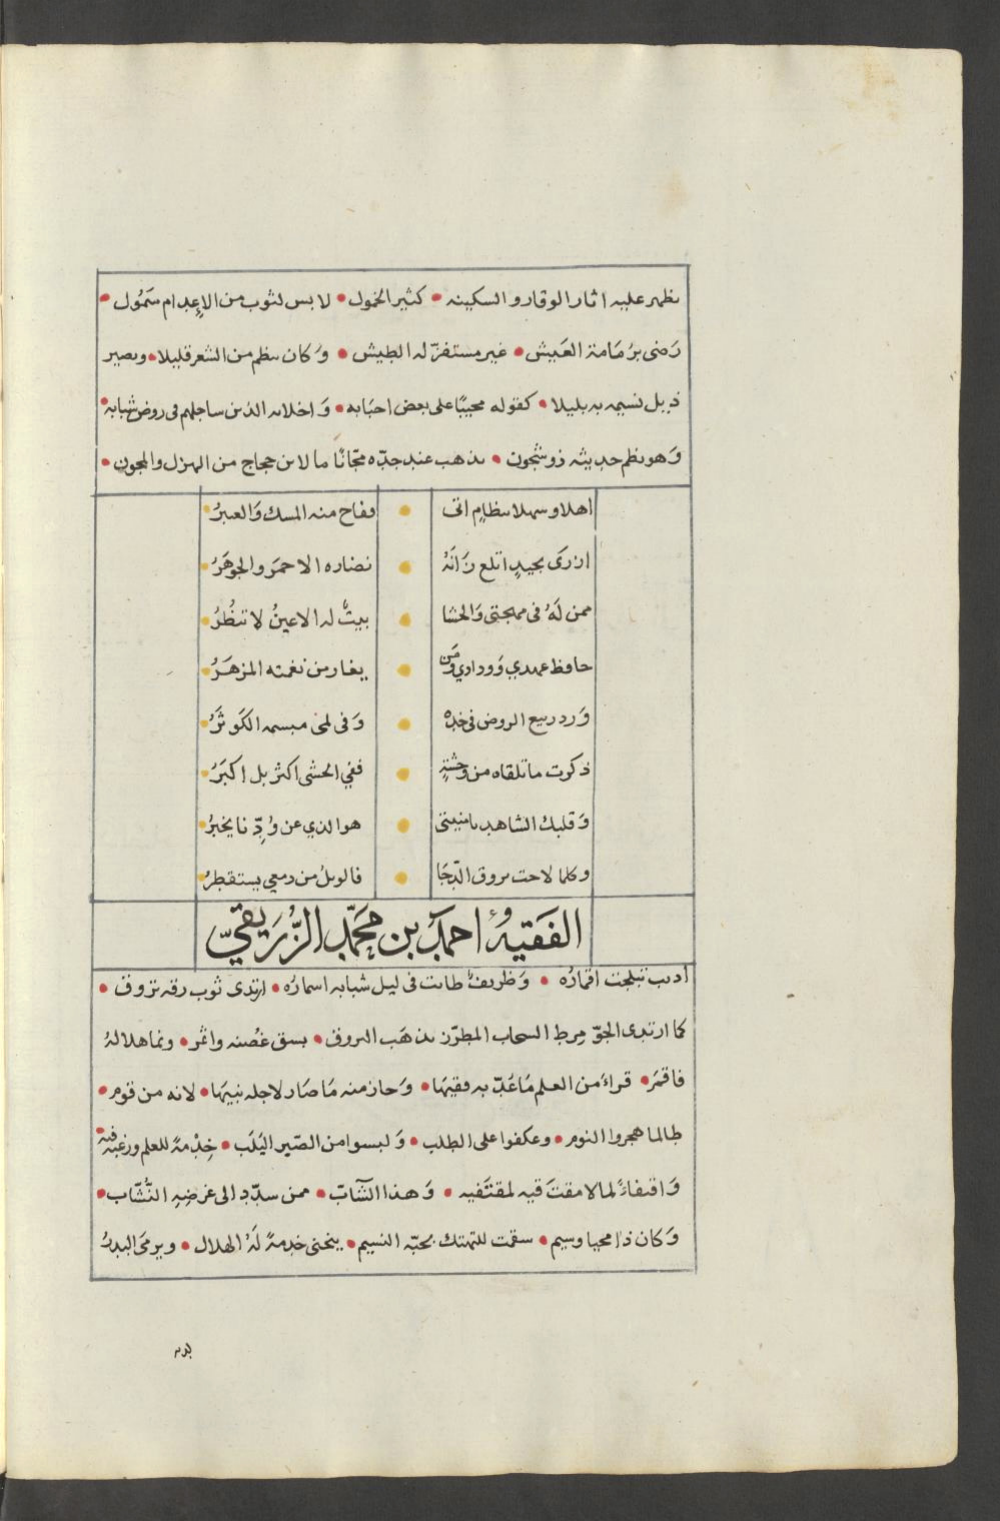 يظهر عليه اثار الوقار و السكينه • كثير الخمول • لابس لثوب من الاعدام سَمُول •
رَضى برُمَامة العَيش • غير مستفزّ له الطيش • وَكان ينظم من الشعر قليلا • ويصير
ذبل نسيمه به بليلا • كقوله مجيبًا على بعض احبَابه • وَاخلائه الذين ساجلهم فى روض شبابه •
وَهو نظم حديثه ذو شجون • يذهب عند جدّه مجّانًا ما لابن حجاج من الهزل والمجون •
اهلا وسهلا بنظامٍ اتى • وفاح منه المسك وَالعنبرُ •
ازرَى بجيدٍ اتلع زَانَهُ • نضاره الاحمَر والجوهَرُ •
ممن لَهُ فى مهجتى وَالحشا • بيتٌ له الاعينُ لا تنظُرُ •
حافظ عهدي وَودادي وَمَن • يغار من نغمته المزهَرُ •
وَرد ربيع الروض فى خدّه • وَفى لمى مبسمه الكَوثَرُ •
ذكرت ما تلقاه من وحشةٍ • ففي الحشى اكثر بل اكبَرُ •
وَقلبك الشاهد يا منيتى • هو الذي عن وُدِّنا يخبرُ •
وكلما لاحت بروق الدّجَا • فالوبلُ من دمعي يستقطرُ •
الفَقيهُ احمَدُ بن محمّد الزُّرَيقيّ
اديب تبلجت اقمارُه • وَظريفٌ طابت فى ليل شبابه اسمارُه • ارتدى ثوب رقه تروق •
كما ارتدى الجوّ مِرط السحاب المطرّز بذهَب البروق • بسق غصنه واثمر • ونما هلالهُ
فاقمَر • قراءَ من العلم مَا عُدّ به فقيهَا • وَحاز منه مَا صَار لاجله نبيهَا • لانه من قوم •
طالما هجروا النوم • وعكفوا على الطلب • وَلبسوا من الصّبر اليَلَب • خِدْمةً للعلم ورغبَة فيه •
وَاقتفاءً لما لا مقتَ فيه لمقتَفيه • وَهذا الشّابّ • ممن سدّد الى غرضِهِ النُّشّاب •
وَكان ذا محيا وسيم • سقمت للتهتك بحبّه النسيم • ينحنى خدمةً لَهُ الهلال • ويرمَى البدرُ